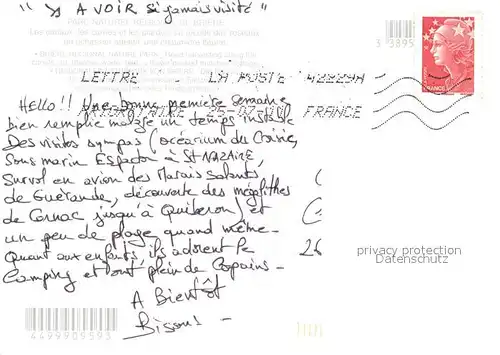 " ⇒ A VOIR si jamais visité "
PARC NATUREL REGIONAL DE BRIERE
3 3895
LETTRE
LA POSTE 42229A
PRIORITAIRE 25-07-
FRANCE
Hello !! Une bonne première semaine
bien remplie malgré un temps instable
Des visites sympas (océarium du Croisic,
Sous marin Espadon à St NAZAIRE,
Survol en avion des Marais salants
de Guérande, découverte des mégalithes
de Carnac jusqu'à Quiberon) et
un peu de plage quand même.
Quant aux enfants ils adorent le
Camping et ont plein de Copains -
A Bientôt
Bisous -
26
FRANCE
privacy protection
Datenschutz
4499909593